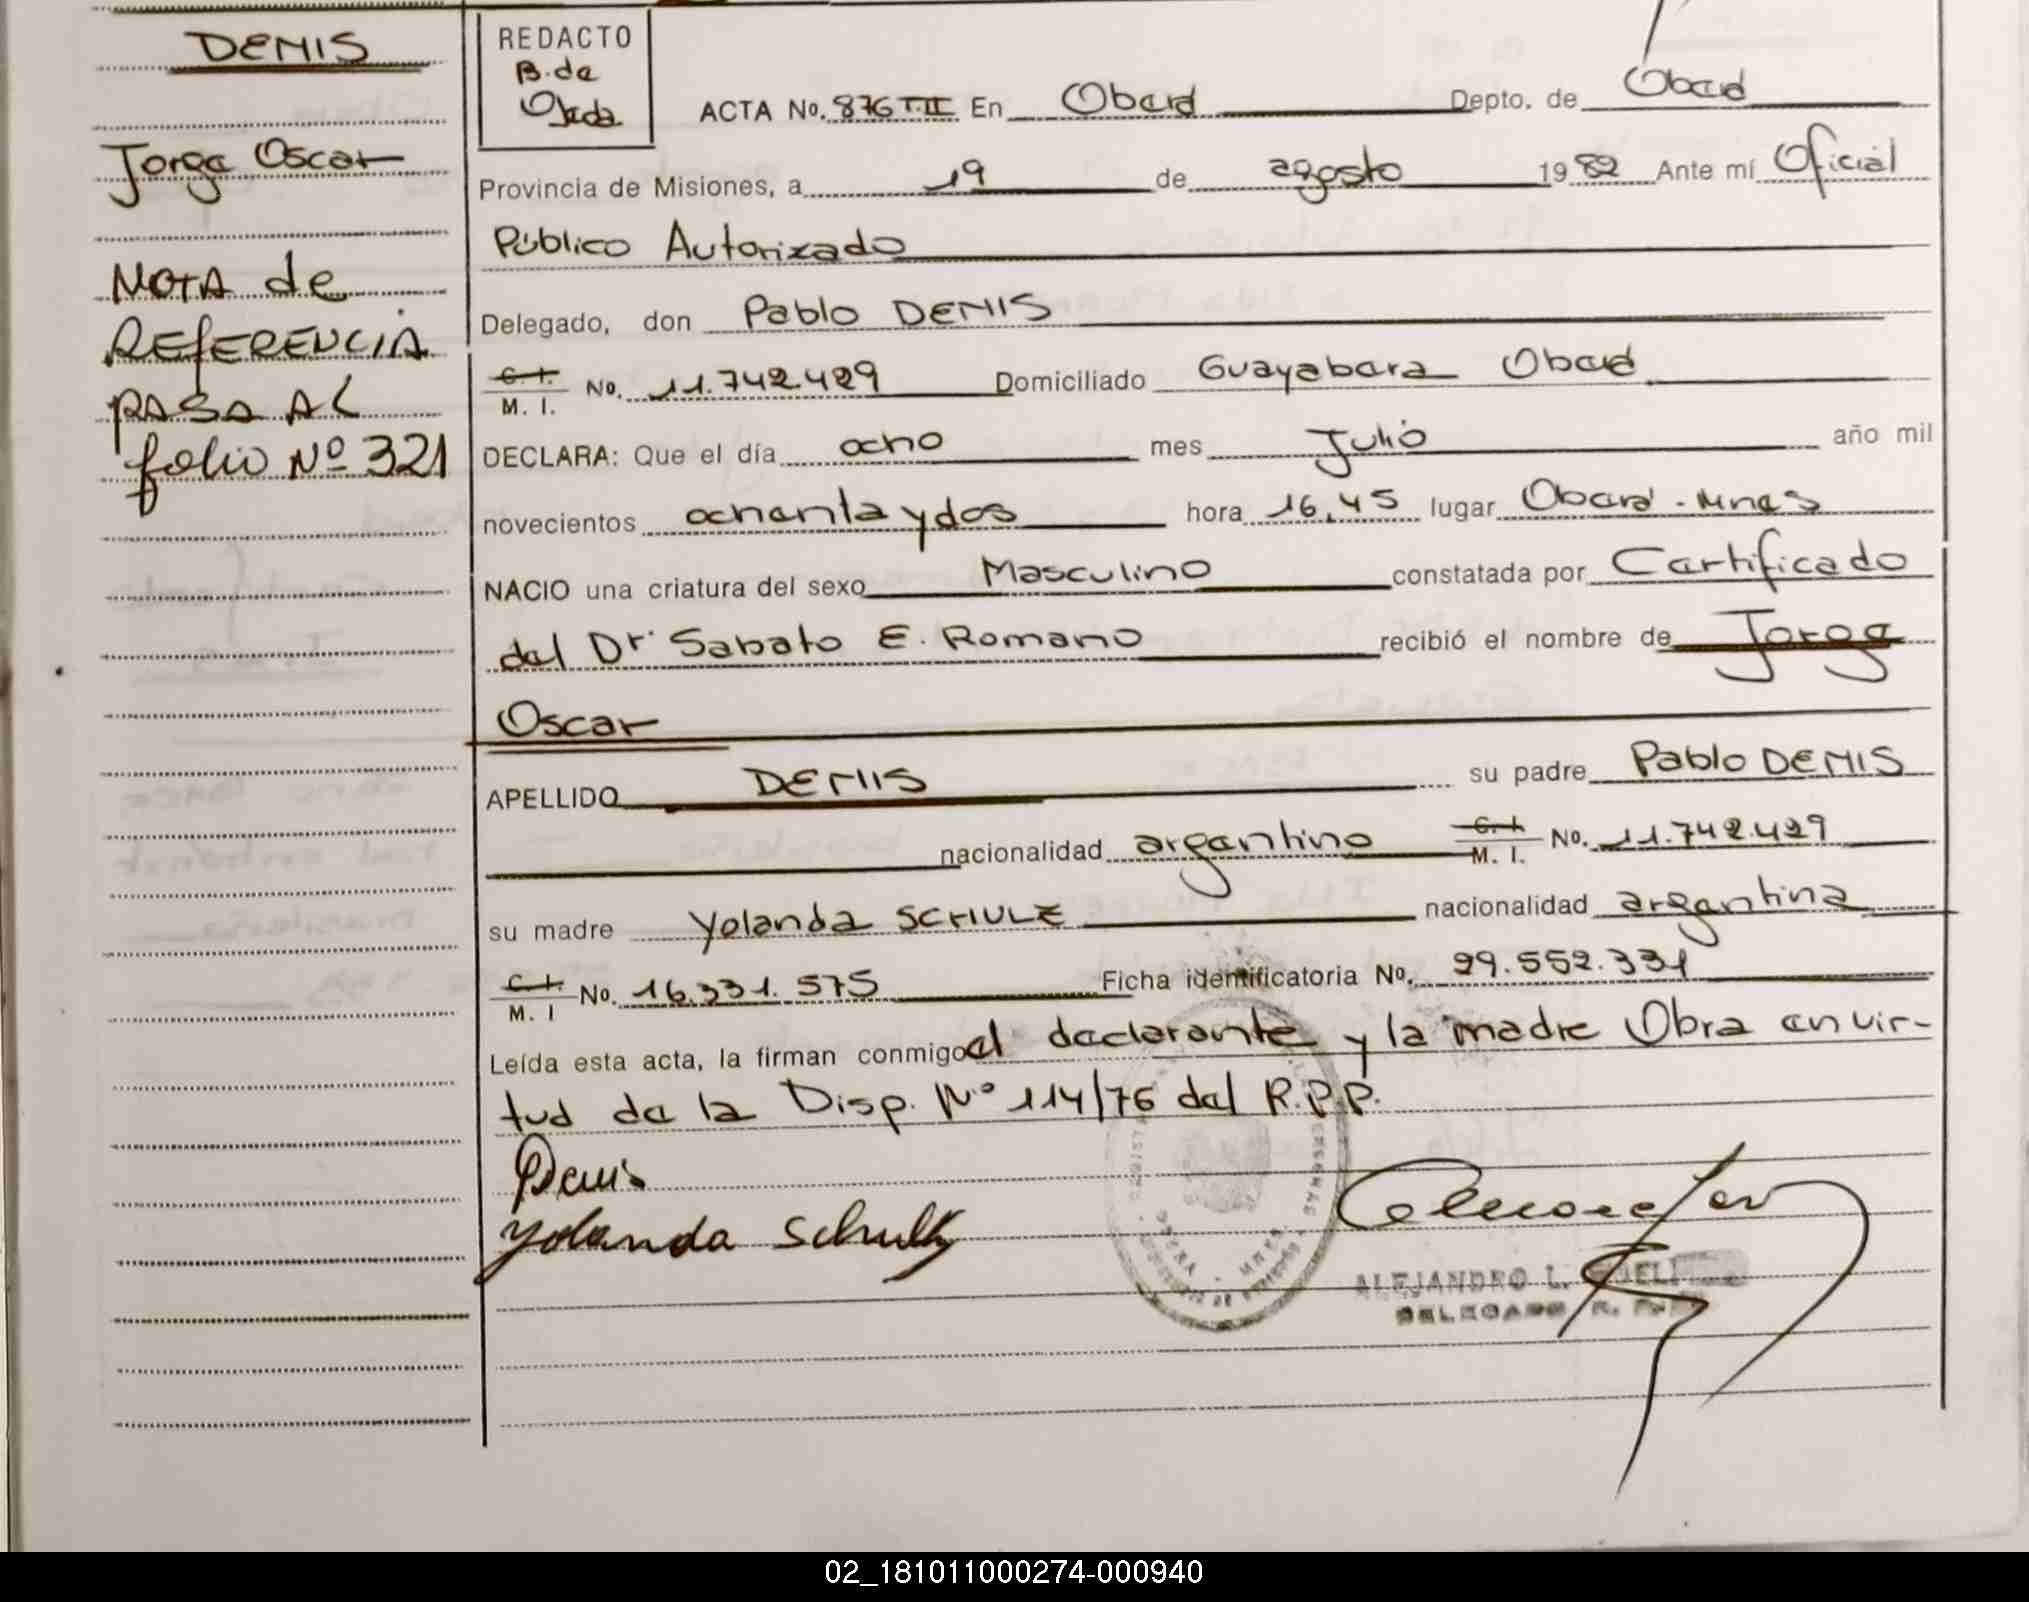 DENIS
Jorge Oscar
NOTA de
REFERENCIA
PASA AL
folio Nº 321
REDACTO
B. de
Ojeda
ACTA No. 876 T. II En Oberá Depto. de Oberá
Provincia de Misiones, a 19 de agosto 1982 Ante mí Oficial
Público Autorizado
Delegado, don Pablo DENIS
C. I.
M. I. No. 11.742.429 Domiciliado Guayabera Oberá
DECLARA: Que el día ocho mes Julio año mil
novecientos ochenta y dos hora 16,45 lugar Oberá - Mnes
NACIO una criatura del sexo Masculino constatada por Certificado
del Dr. Sabato E. Romano recibió el nombre de Jorge
Oscar
APELLIDO DENIS su padre Pablo DENIS
nacionalidad argentino C. I. M. I. No. 11.742.429
su madre Yolanda SCHULZ nacionalidad argentina
C. I.
M. I No. 16.331.575 Ficha identificatoria No. 29.552.331
Leída esta acta, la firman conmigo el declarante y la madre Obra en vir-
tud de la Disp. Nº 114/76 del R.P.P.
Denis
Yolanda Schulz
ALEJANDRO L.
DELEGADO R.
02_181011000274-000940